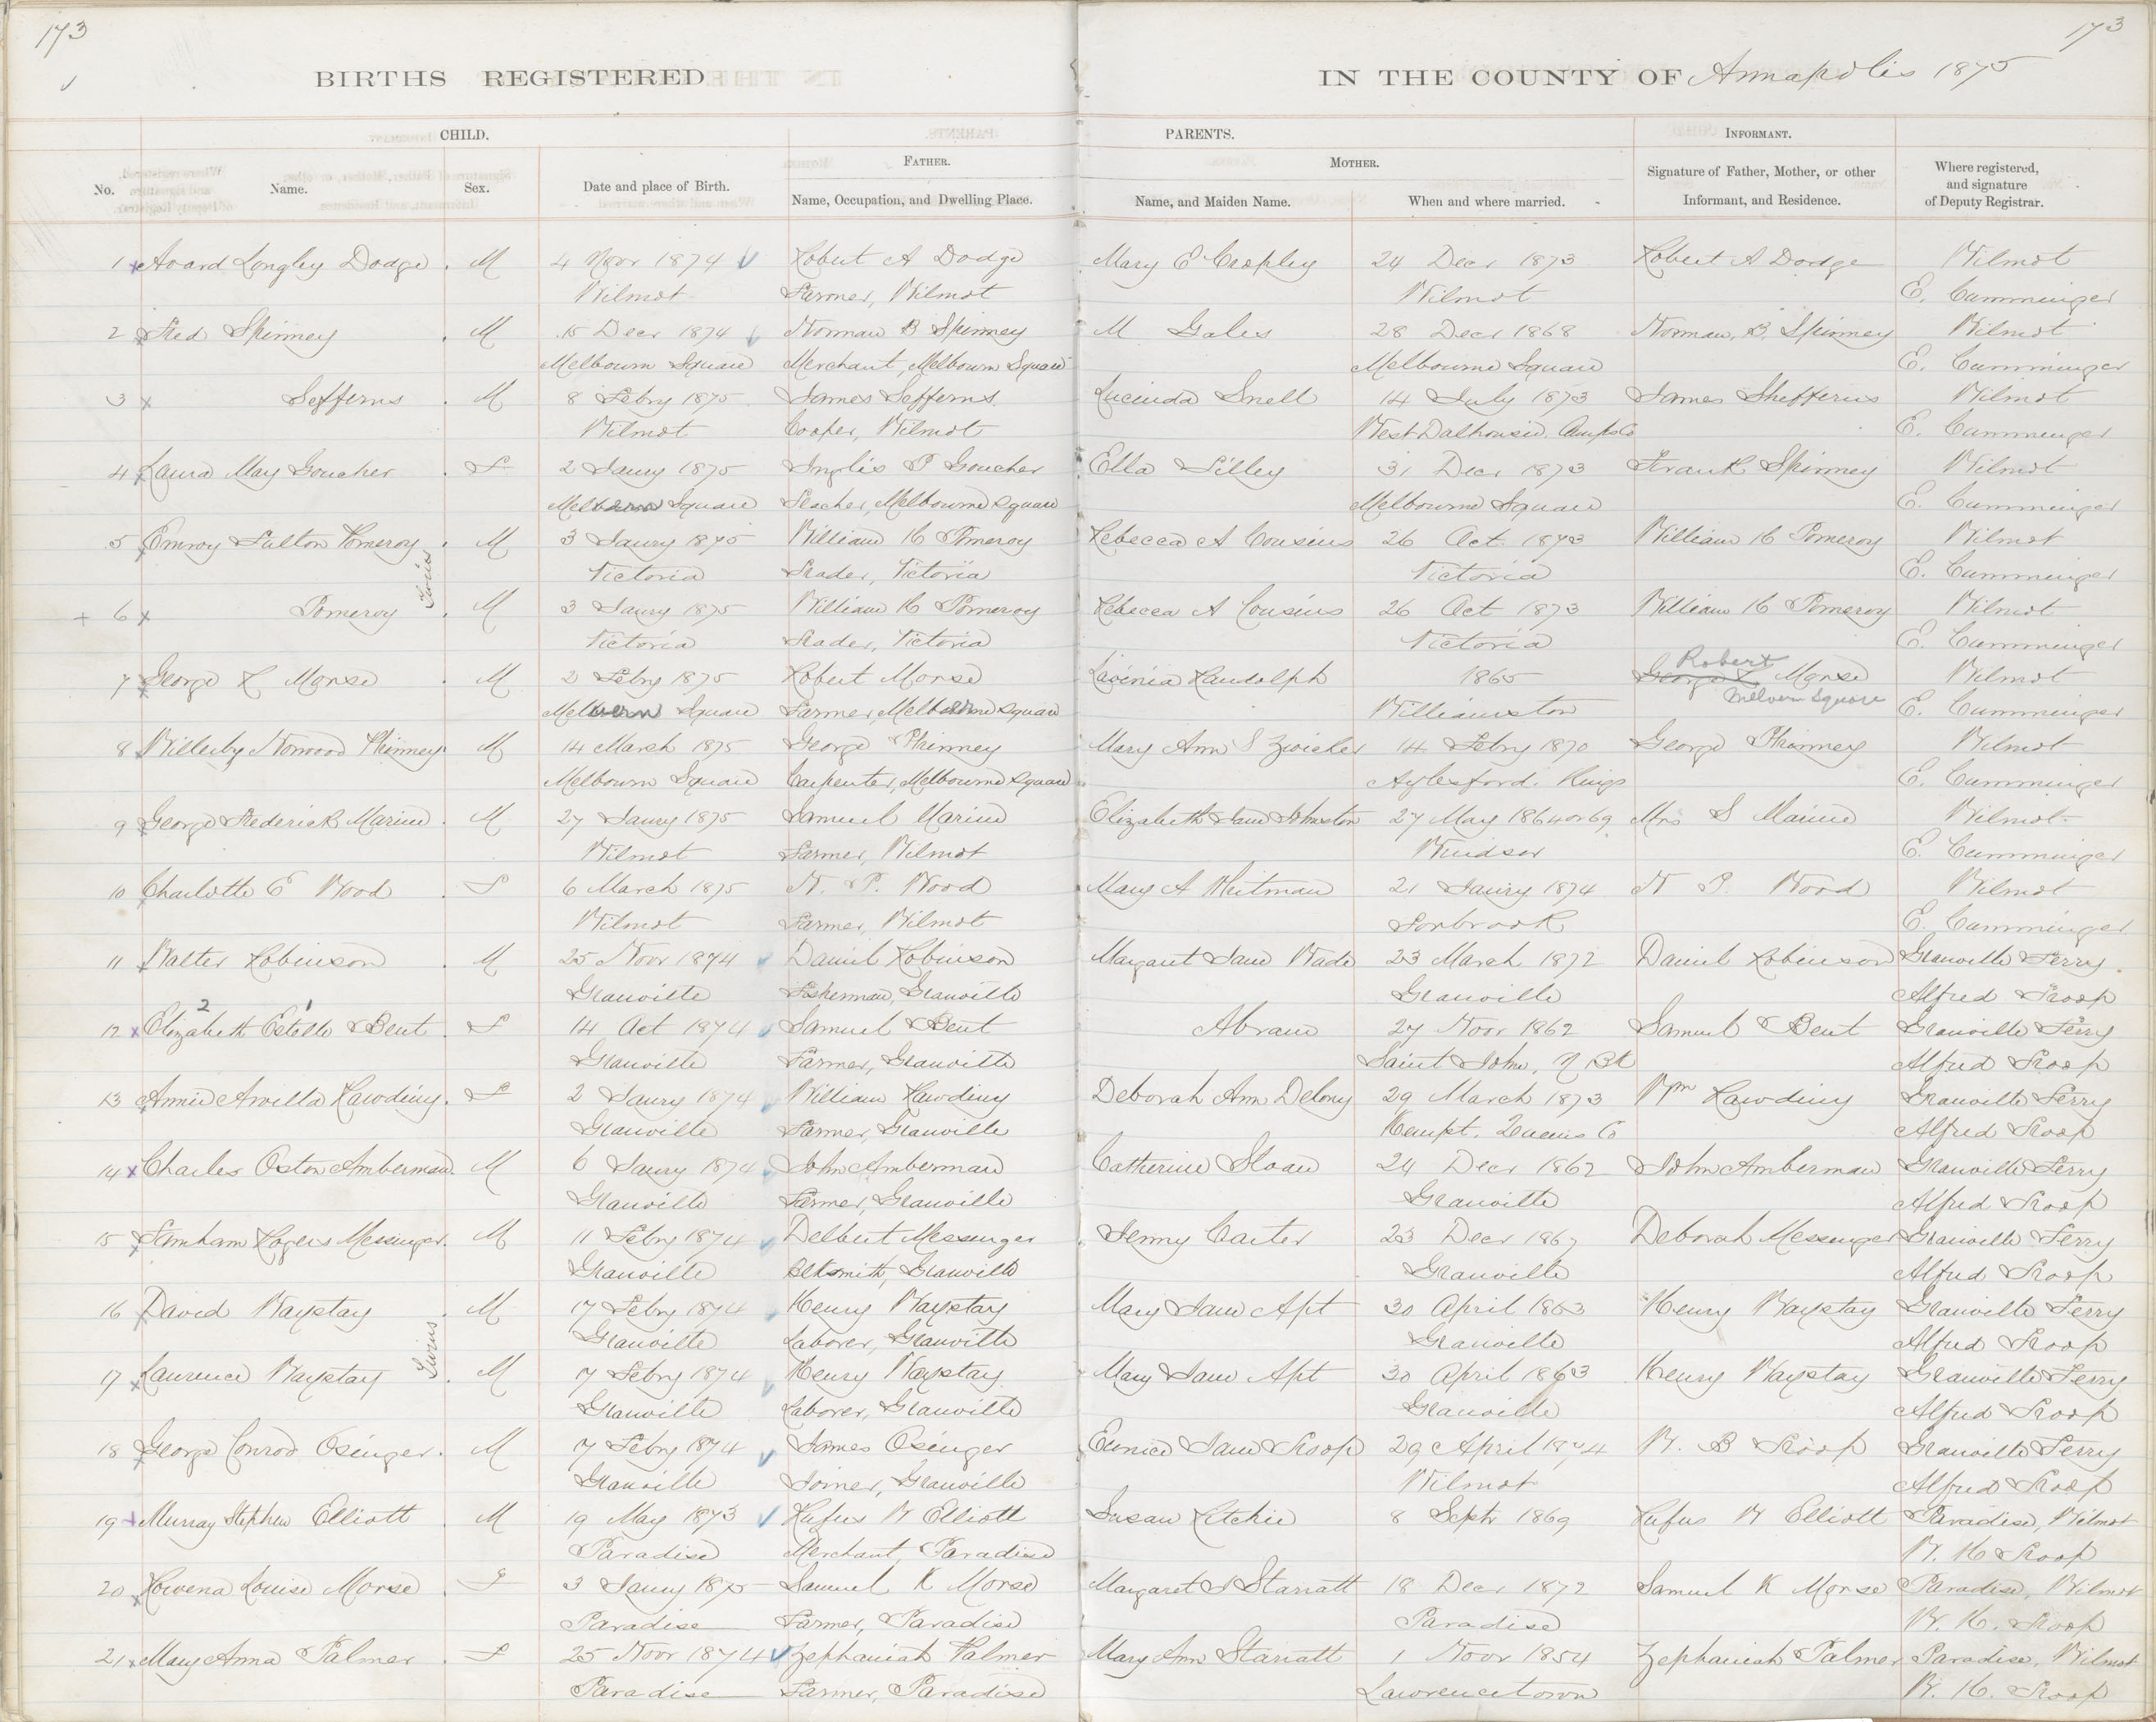 173
173
BIRTHS REGISTERED IN THE COUNTY OF Annapolis 1875
CHILD. PARENTS. INFORMANT.
FATHER. MOTHER.
No. Name. Sex. Date and place of Birth. Name, Occupation, and Dwelling Place. Name, and Maiden Name. When and where married. Signature of Father, Mother, or other Informant, and Residence. Where registered, and signature of Deputy Registrar.
1 Avard Longley Dodge M 4 Novr 1874 Robert A Dodge Mary E Cropley 24 Decr 1873 Robert A Dodge Wilmot
Wilmot Farmer, Wilmot Wilmot E. Cumminger
2 Fred Spinney M 15 Decr 1874 Norman B Spinney M Gales 28 Decr 1868 Norman, B, Spinney Wilmot
Melbourn Square Merchant, Melbourn Square Melbourne Square E. Cumminger
3 Sefferns M 8 Febry 1875 James Sefferns Lucinda Snell 14 July 1873 James Shefferns Wilmot
Wilmot Cooper, Wilmot West Dalhousie. E. Cumminger
4 Laura May Goucher F 2 Jany 1875 Inglis P Goucher Ella Lilley 31 Decr 1873 Frank Spinney Wilmot
Square Teacher, Melbourne Square Melbourne Square E. Cumminger
5 Emroy Fulton Pomeroy M 3 Jany 1875 William H Pomeroy Rebecca A Cousins 26 Oct. 1873 William H Pomeroy Wilmot
Victoria Trader, Victoria Victoria E. Cumminger
+ 6 Pomeroy M 3 Jany 1875 William H Pomeroy Rebecca A Cousins 26 Oct 1873 William H Pomeroy Wilmot
Victoria Trader, Victoria Victoria E. Cumminger
Robert
7 George L Morse M 2 Febry 1875 Robert Morse Lavinia Randolph 1865 George L Morse Wilmot
Melvern Square Farmer, Square Williamston Melvern Square E. Cumminger
8 Willerby Norwood Phinney M 14 March 1875 George Phinney Mary Ann S Zwicker 14 Febry 1870 George Phinney Wilmot
Melbourn Square Carpenter, Melbourne Square Aylesford. Kings E. Cumminger
9 George Frederick Marine M 27 Jany 1875 Samuel Marine Elizabeth Jane Johnston 27 May 1864 or 69 Mrs S Marine Wilmot
Wilmot Farmer, Wilmot Windsor E. Cumminger
10 Charlotte E Wood F 6 March 1875 N. P. Wood Mary A Whitman 21 Jany 1874 N P. Wood Wilmot
Wilmot Farmer, Wilmot Torbrook E. Cumminger
11 Walter Robinson M 25 Novr 1874 Daniel Robinson Margaret Jane Wade 23 March 1872 Daniel Robinson Granville Ferry
Granville Fisherman, Granville Granville Alfred Troop
2 1
12 Elizabeth Estelle Bent F 14 Oct 1874 Samuel Bent Abram 27 Novr 1862 Samuel Bent Granville Ferry
Granville Farmer, Granville Saint John, N Bk Alfred Troop
13 Annie Arvilla Rawding F 2 Jany 1874 William Rawding Deborah Ann Delong 29 March 1873 Wm Rawding Granville Ferry
Granville Farmer, Granville Kempt. Queens Co Alfred Troop
14 Charles Oston Amberman M 6 Jany 1874 John Amberman Catherine Sloan 24 Decr 1862 John Amberman Granville Ferry
Granville Farmer, Granville Granville Alfred Troop
15 Rogers Messinger M 11 Febry 1874 Delbert Messenger Jenny Carter 23 Decr 1867 Deborah Messenger Granville Ferry
Granville Blksmith, Granville Granville Alfred Troop
16 David Waystay M 17 Febry 1874 Henry Waystay Mary Jane Apt 30 April 1863 Henry Waystay Granville Ferry
Twins
Granville Laborer, Granville Granville Alfred Troop
17 Laurence Waystay M 17 Febry 1874 Henry Waystay Mary Jane Apt 30 April 1863 Henry Waystay Granville Ferry
Granville Laborer, Granville Granville Alfred Troop
18 George Conrod Osinger M 17 Febry 1874 James Osinger Eunice Jane Troop 29 April W. B Troop Granville Ferry
Granville Joiner, Granville Wilmot Alfred Troop
19 Murray Stephen Elliott M 19 May 1873 Rufus W Elliott Susan Ritchie 8 Septr 1869 Rufus W Elliott Paradise, Wilmot
Paradise Merchant Paradise W. H Troop
20 Rowena Louise Morse F 3 Jany 1875 Samuel K Morse Margaret Starratt 18 Decr 1872 Samuel K Morse Paradise, Wilmot
Paradise Farmer, Paradise Paradise W. H. Troop
21 Mary Anna Palmer F 25 Novr 1874 Zephaniah Palmer Mary Ann Starratt 1 Novr 1854 Zephaniah Palmer Paradise, Wilmot
Paradise Farmer, Paradise Lawrencetown W. H. Troop